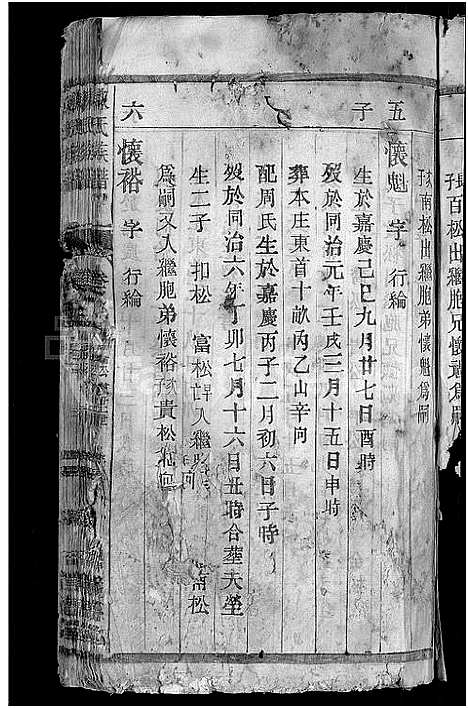 長百松出繼胞兄懷
次子南松出繼胞弟懷魁爲嗣
五子
懷魁 字 行綸
生於嘉慶己巳九月廿七日酉時
歿於同治元年壬戌三月十五日申時
葬本庄東首十畝丙乙山辛向
配周氏生於嘉慶丙子二月初六日子時
歿於同治六年丁卯七月十六日丑時合葬大塋
生二子 扣松 富松 繼 南松
爲嗣又入繼胞弟懷裕 貴松
六
懷裕 字 行綸
氏族譜